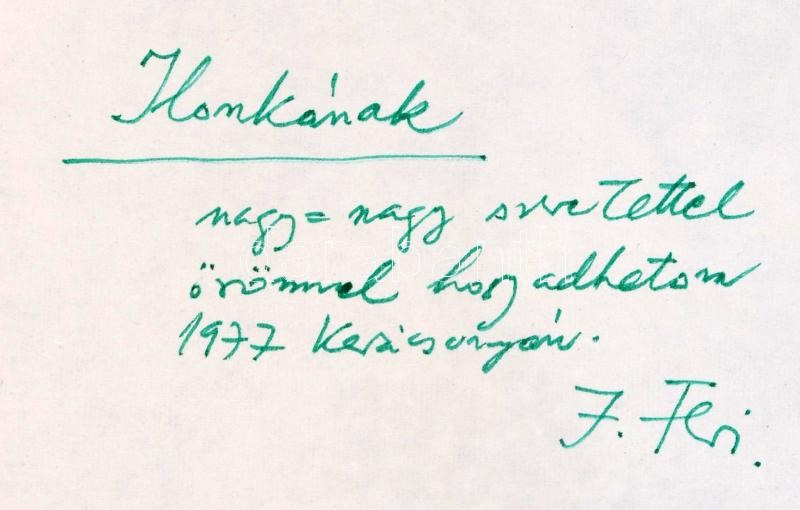 Ilonkának
nagy=nagy szeretettel
örömmel hogy adhatom
1977 Karácsonyán.
J. Feri.